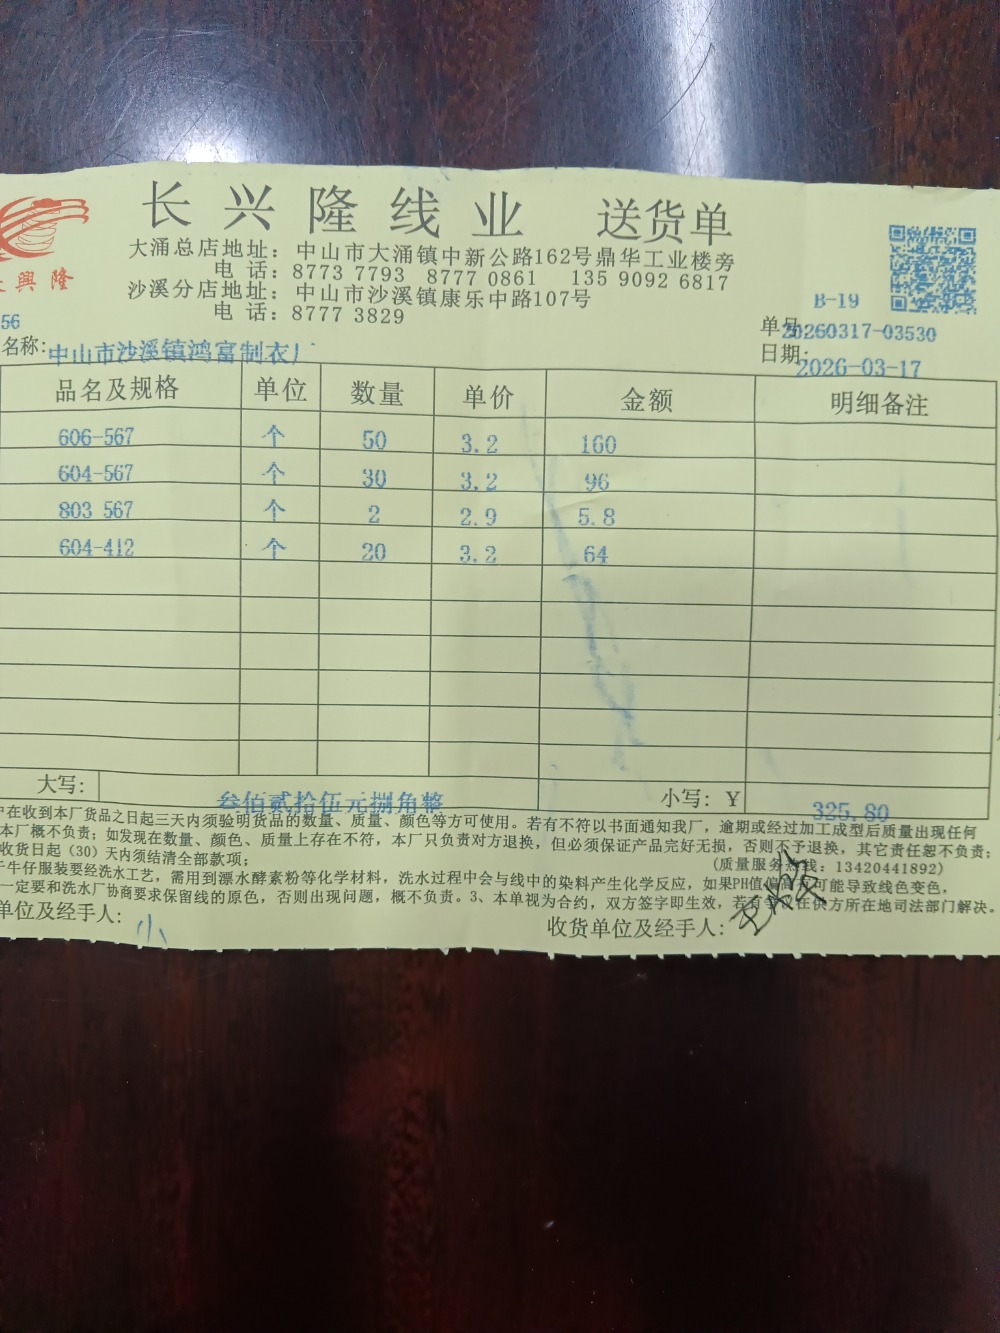 长兴隆线业 送货单
大涌总店地址：中山市大涌镇中新公路162号鼎华工业楼旁
电 话：8773 7793 8777 0861 135 9092 6817
沙溪分店地址：中山市沙溪镇康乐中路107号
电 话：8777 3829
興隆
B-19
56
单号 20260317-03530
名称：中山市沙溪镇鸿富制衣厂
日期：2026-03-17
品名及规格 单位 数量 单价 金额 明细备注
606-567 个 50 3.2 160
604-567 个 30 3.2 96
803 567 个 2 2.9 5.8
604-412 个 20 3.2 64
大写： 叁佰贰拾伍元捌角整 小写：Y 325.80
户在收到本厂货品之日起三天内须验明货品的数量、质量、颜色等方可使用。若有不符以书面通知我厂，逾期或经过加工成型后质量出现任何
本厂概不负责；如发现在数量、颜色、质量上存在不符，本厂只负责对方退换，但必须保证产品完好无损，否则不予退换，其它责任恕不负责；
收货日起（30）天内须结清全部款项；
(质量服务热线：13420441892)
牛仔服装要经洗水工艺，需用到漂水酵素粉等化学材料，洗水过程中会与线中的染料产生化学反应，如果PH值偏高有可能导致线色变色，
一定要和洗水厂协商要求保留线的原色，否则出现问题，概不负责。3、本单视为合约，双方签字即生效，若有争议在供方所在地司法部门解决。
单位及经手人： 小
收货单位及经手人：